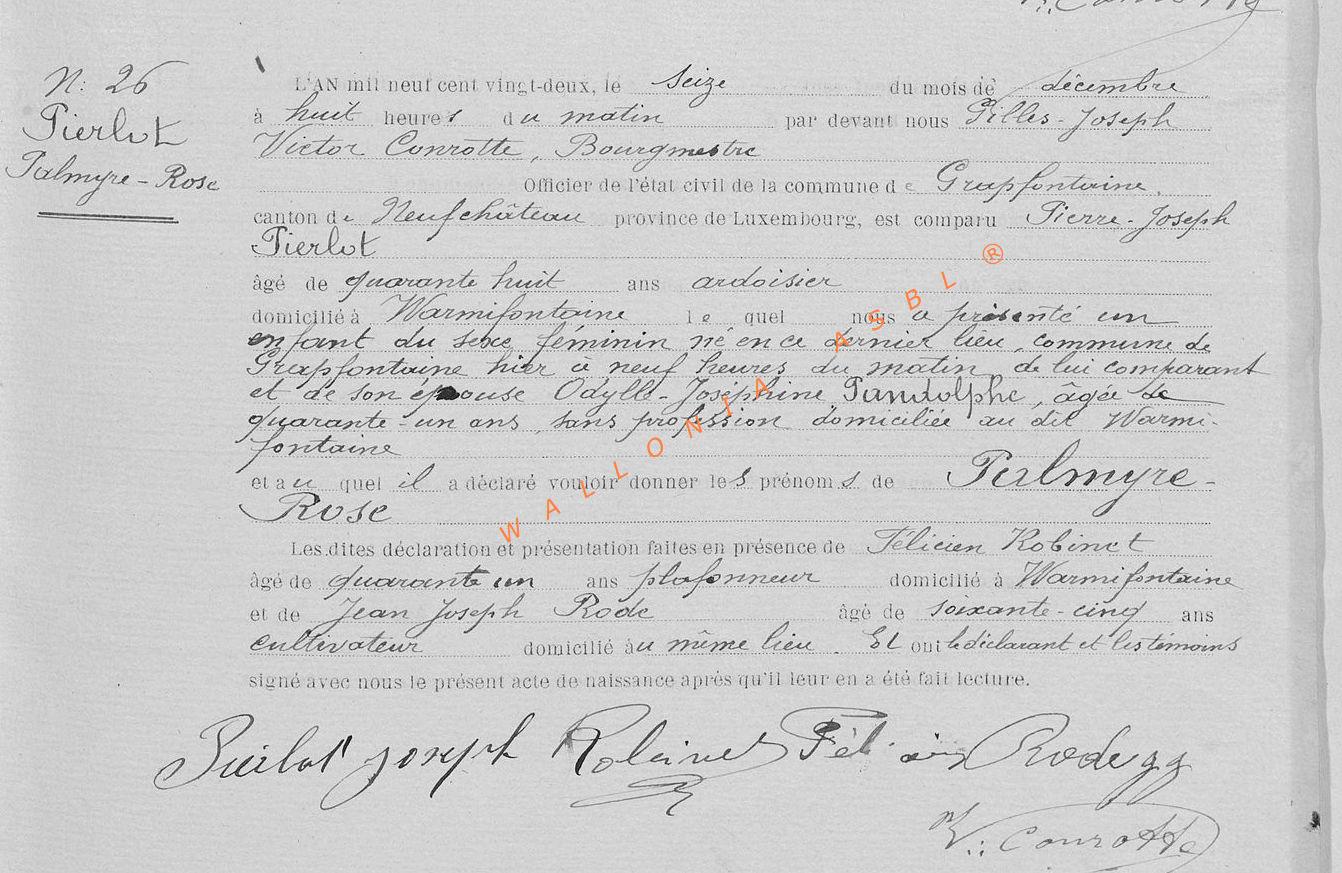 N: 26
Pierlot
Palmyre-Rose
L'AN mil neuf cent vingt-deux, le seize du mois de décembre
à huit heures du matin par devant nous Gilles-Joseph
Victor Conrotte, Bourgmestre
Officier de l'état civil de la commune de Grapfontaine.
canton de Neufchâteau province de Luxembourg, est comparu Pierre-Joseph
Pierlot
âgé de quarante huit ans ardoisier
domicilié à Warmifontaine le quel nous a présenté un
enfant du sexe féminin né en ce dernier lieu, commune de
Grapfontaine hier à neuf heures du matin, de lui comparant
et de son épouse Odylle-Joséphine Pandolphe, âgée de
quarante-un ans, sans profession domiciliée au dit Warmi-
fontaine
et au quel il a déclaré vouloir donner les prénoms de Palmyre-
Rose
Les dites déclaration et présentation faites en présence de Félicien Robinet
âgé de quarante un ans plafonneur domicilié à Warmifontaine
et de Jean Joseph Rode âgé de soixante-cinq ans
cultivateur domicilié au même lieu. Et ont le déclarant et les témoins
signé avec nous le présent acte de naissance après qu'il leur en a été fait lecture.
Pierlot joseph Robinet Rode jj
V.: Conrotte
WALLONIA ASBL ®